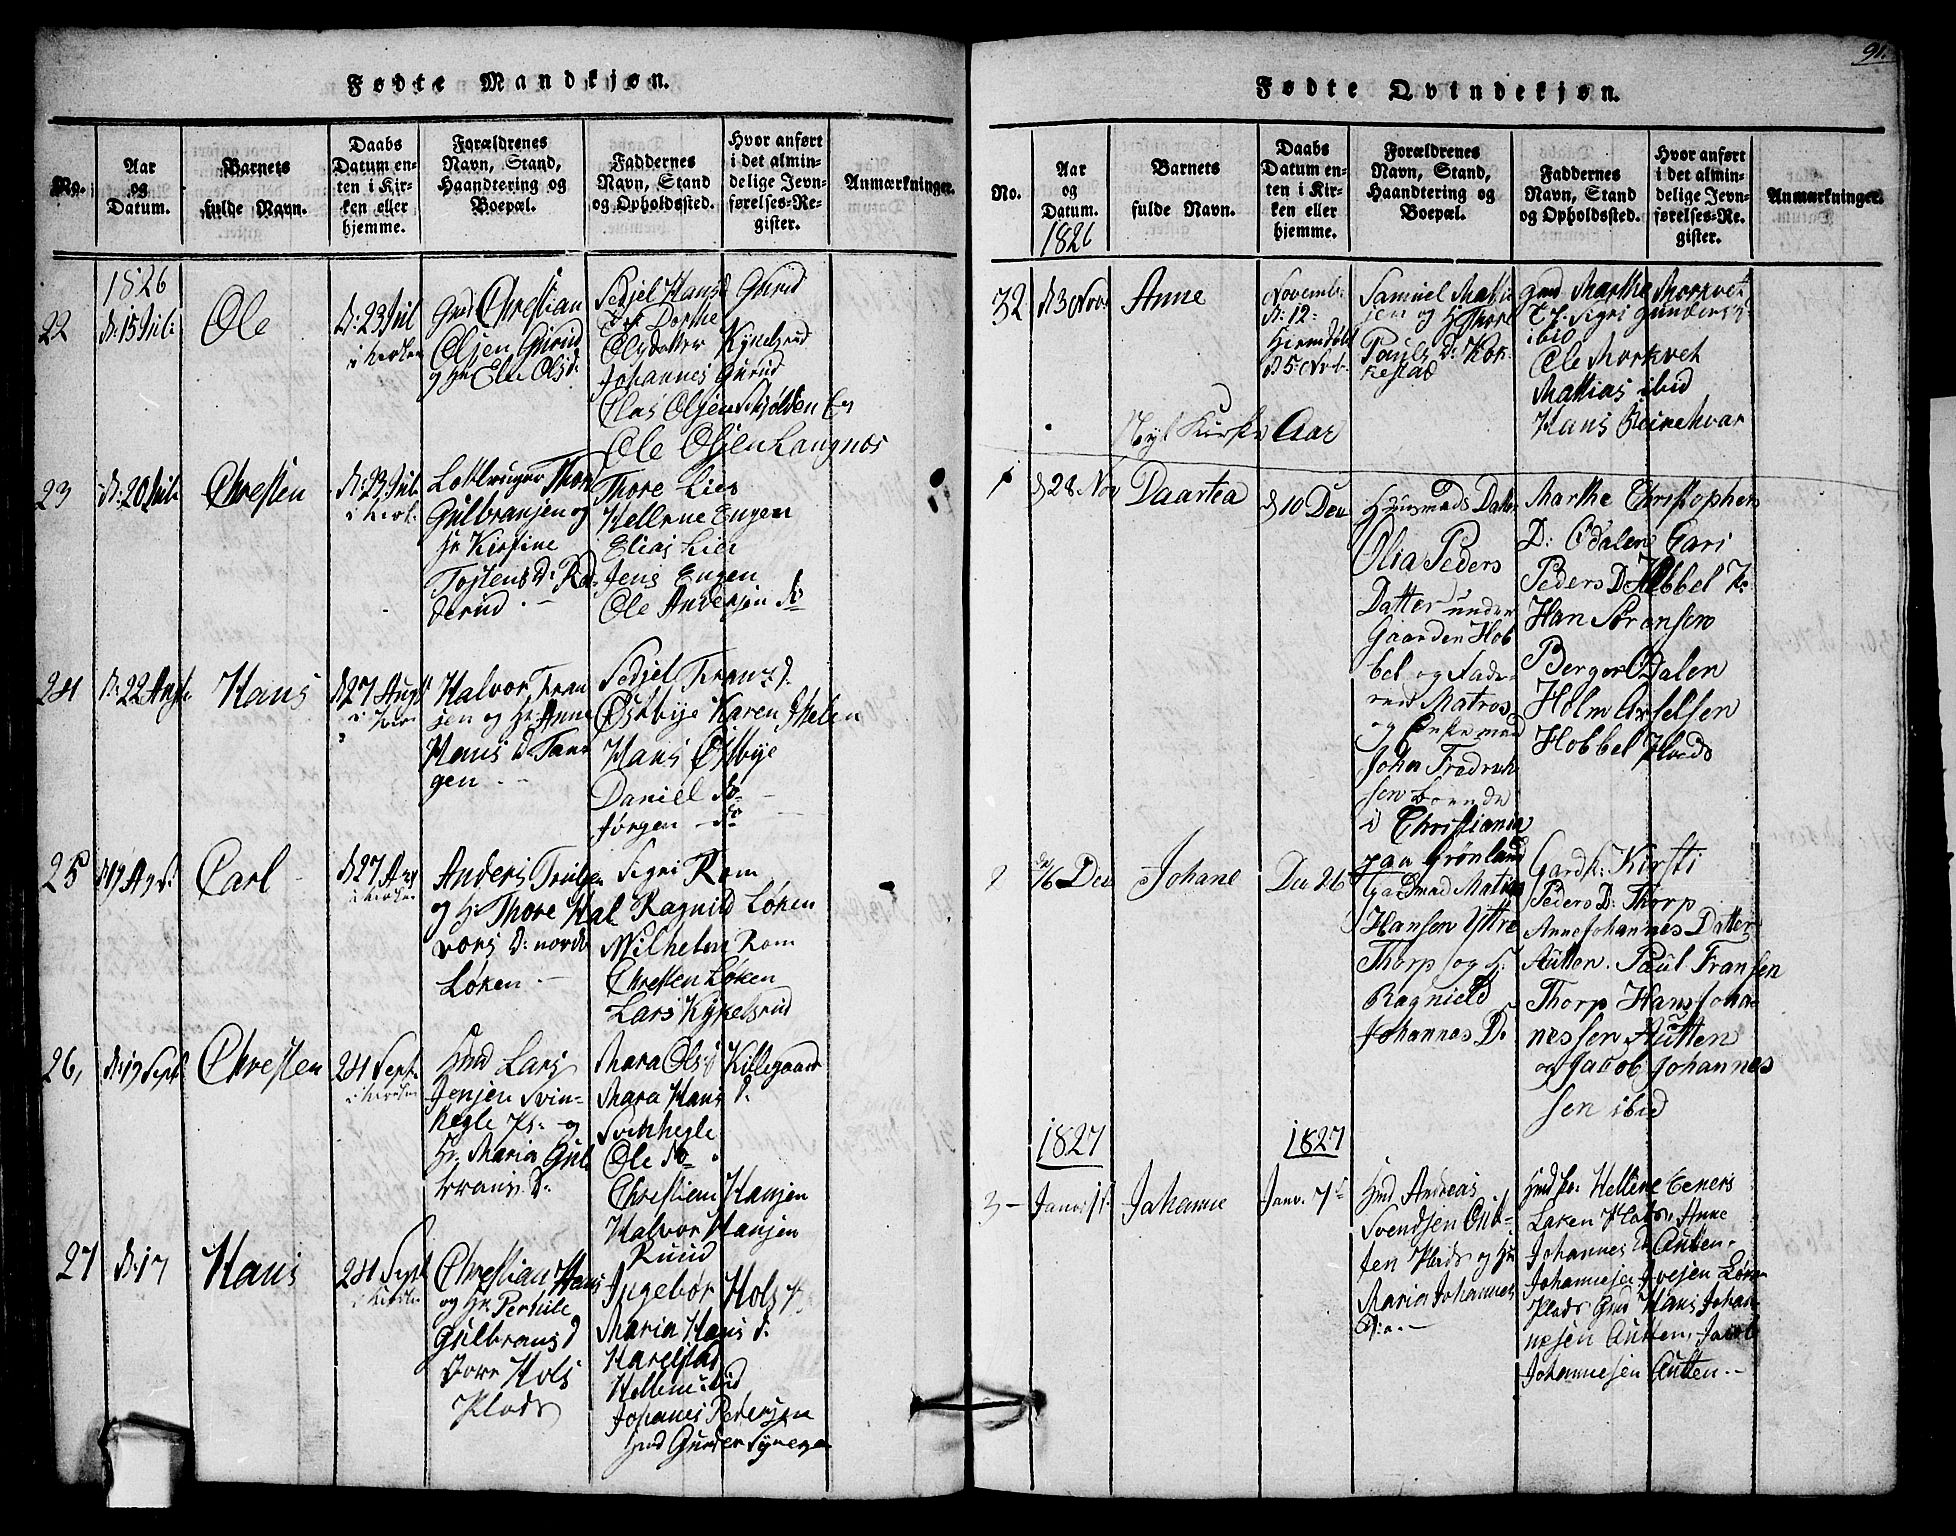 Fødte Mandkjøn.
No.
Aar og Datum.
Barnets fulde Navn.
Daabs Datum enten i Kirken eller hjemme.
Forældrenes Navn, Stand, Haandtering og Boepæl.
Faddernes Navn, Stand og Opholdssted.
Hvor anført i det almindelige Jevnførelses-Register.
Anmærkninger.
1826
22
D: 15 Juli
Ole
D: 23 Jul
i Kirken
Gmd Christian
Olsen Gurud
og Hr Else Olsd:
Sidsel Hansd Gurud
Dorthe
Olsdatter Kykelsrud
Johannes Gurud
Ole Olsen Langnæs
23
D: 20 Juli
Christen
D: 23 Jul
i Kirk.
Thor
Gulbransen og
Hr Kirstine
Tostens D:
Thore Lier
Hellene Engen
Elias Lier
Jens Engen
Ole Andersen do
24
D: 22 Augst
Hans
D 27 Augst
i Kirk
Halvor Fran
sen og Hr Anne
Hans D: Tan
gen
Sidsel Franzd.
Østbye Karen
Hans Østbye
Daniel do
Jørgen do
25
Carl
D 27 Aug
i Kirken
Anders
og Hr Thore Hal
vors D: nordr
Løken
Sigri Rom
Ragnild Løken
Wilhelm Rom
Christen Løken
Lars Kykelsrud
26,
D: 19 Sept
Christen
24 Sept.
i Kirken
Hmd Lars
Jensen Svin-
hegle Pl: og
Hr. Maria Gul
brans D:
Mara Olsd Killegaard
Mara Hans D.
Svinhegle
Ole do
Christian Hansen
Halvor Hansen
Ruud
27
D: 17
Hans
24 Sept
i Kirken
Christian Hans
og Hr Pernile
Gulbrans D
Hols
Plads
Ingebor Hols Pl
Maria Hans d:
Harelstad
Hellene ibid
Johanes Pedersen
Hmd Gunder
91.
Fødte Qvindekjøn.
No.
Aar og Datum.
Barnets fulde Navn.
Daabs Datum enten i Kirken eller hjemme.
Forældrenes Navn, Stand, Haandtering og Boepæl.
Faddernes Navn, Stand og Opholdssted.
Hvor anført i det almindelige Jevnførelses-Register.
Anmærkninger.
1826
32
D 3 Novb
Anne
Novemb:
D: 12
Hiemdøbt
D 5 Novb.
Samuel Mathi
sen og Hr Thore
Pauls D: Kok-
kestad
Gmd Marthe Morkvet
Sigri Gunders
ibid
Ole Morkvet
Mathias ibid
Hans
Nyt Kirke Aar
1
D 28 Nov
Daartea
D 10 Dec
Huusmands Datter
Olia Peders
Datter under
Gaarden Hob
bel og Fade-
ren Matros
og Enkemand
John Fredrik
sen boende
i Christiania
paa Grønland
Marthe Christophers
D: Odalen Gari
Peders D: Hobbel
Han Sørensen
Berger Odalen
Holm Axelsen
Hobbel Plads
2
16 Dec
Johane
Dec 26
Gaardmad Matias
Hansen Yttre
Thorp og H.
Ragnield
Johannes D.
Gardk: Kirsti
Peders D: Thorp
Anne Johannes Datter
Autten. Paul Fransen
Thorp Hans Johan
nessen Autten
og Jacob Johannes
sen ibid
1827
1827
3
Janv: 1st.
Johanne
Janv. 7de
Hmd Andreas
Svendsen Out-
ten Plads og Hr
Maria Johannes
D:a
Hmd ko: Hellene Eeners
Løken Plads, Anne
Johannes D: Autten.
Johannes Ivesen Løken
Plads Gmd Hans Johan-
nesen Autten, Jacob
Johannesen Autten.